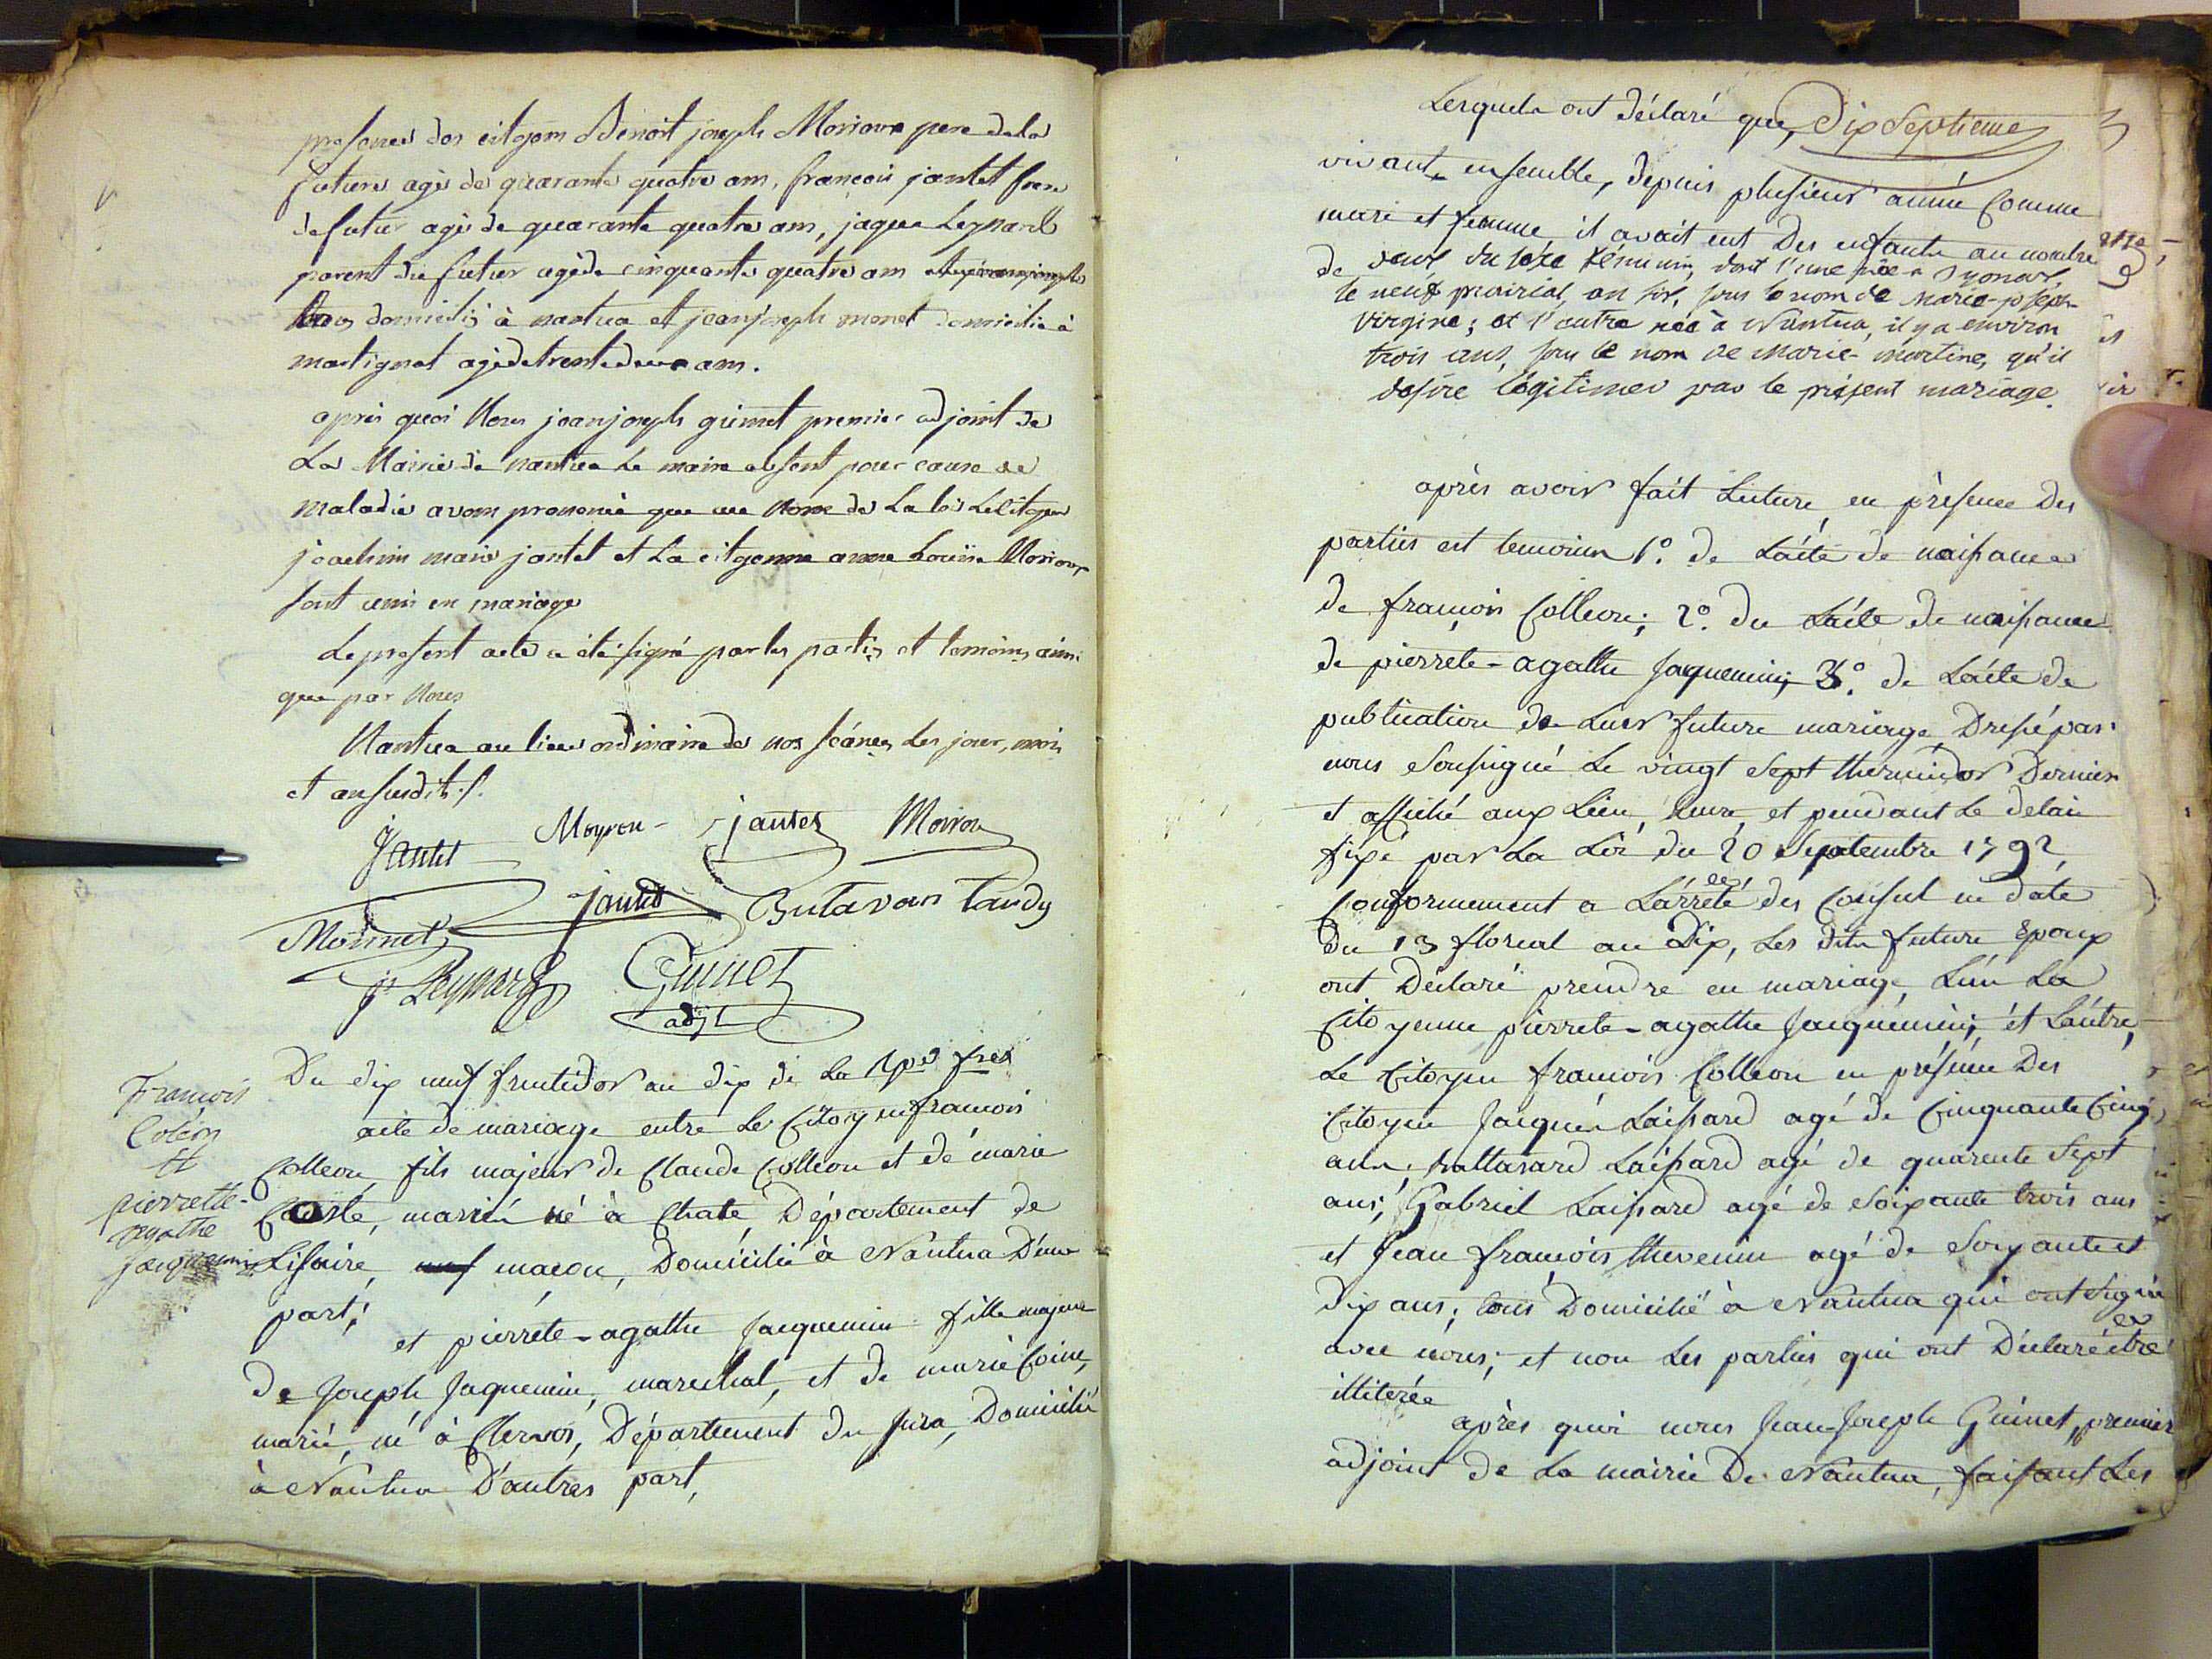 presence des citoyens Benoit joseph Moriome pere de la
future agé de quarante quatre ans, francois jantet frere
de futur agé de quarante quatre ans, jaque Leyssard
parent du futur agé de cinquante quatre ans
tous domiciliés à nantua et jeanjoseph monet domicilié à
martignat agé de trente deux ans.
après quoi Nous jeanjoseph guinet premier adjoint de
La Mairie de nantua Le maire absent pour cause de
maladie avons prononcé que au Nom de La loi Le Citoyen
joachim marie jantet et La citoyenne anne Louise
sont unis en mariage
Le present acte a été signé par les parties et temoins ainsi
que par Nous
Nantua au lieu ordinaire de nos séances Les jour, mois
et an susdits ./.
Jantet Moyron jantet Moiron
Monnet jantet Butavan Tardy
js Leyssard Guinet
adjt
François
Coléon
et
pierrette-
agathe
jacquemin
Du dix neuf fructidor an dix de La Rpe frse
acte de mariage entre Le Citoyen françois
Colleon, fils majeur de Claude Colleon et de marie
mariés né à Chate, Département de
Lisaire, macon, Domicilié à Nantua D'une
part;
et pierrete-agathe Jacquemin fille majeure
De Joseph Jaquemin, marechal, et de marie Coine,
marié, né à Clervos, Département du Jura, Domicilié
à Nantua D'autres part,
Lesquels ont déclaré que, Dix Septieme
vivant ensemble, depuis plusieur année Comme
mari et femme il avait eut Des enfants au nombre
de deux du séxe féminin, dont l'une née a Oyonax,
le neuf prairial, an six, sous le nom de Marie-joseph
Virgine; et l'autre née à Nantua, il y a environ
trois ans, sous le nom de Marie-martine, qu'il
desire légitimer par le présent mariage.
après avoir fait Lecture, en présence Des
parties et temoins 1º. de L'acte de naissance
de françois Colleon; 2º. du L'acte de naissance
de pierrete-agathe Jaquemin; 3º. de L'acte de
publication de Leur future mariage Dressé par
nous Soussigné Le vingt Sept thermidor Dernier
et affiché aux Lieu, heure, et pendant Le delai
fixé par La Loi du 20 Septembre 1792,
Conformement a L'arrêté des Consul en date
Du 13 floreal an Dix, Les dits future Epoux
ont Déclaré prendre en mariage, L'un La
Citoyenne pierrete-agathe Jacquemin; et L'autre,
Le Citoyen françois Colleon en présence Des
Citoyen Jacques Laissard agé de Cinquante Cinq
ans, baltazard Laissard agé de quarente Sept
ans; Gabriel Laissard agé de Soixante trois ans
et Jean françois thevenin agé de Soixante et
Dix ans; tous Domicilié à Nantua qui ont signé
avec nous; et non Les parties qui ont Déclaré être
illiterée
après quoi nous Jean Joseph Guinet, premier
adjoint de La mairie De Nantua, faisant Les